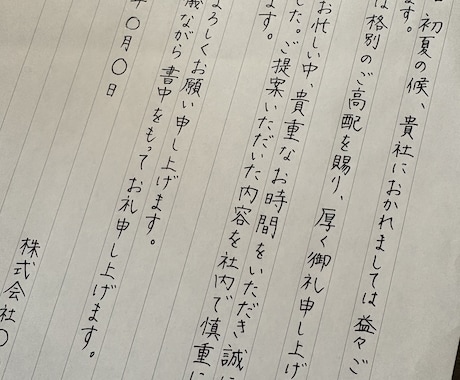 初夏の候、貴社におかれましては益々ご
ます。
は格別のご高配を賜り、厚く御礼申し上げ
ます。
お忙しい中、貴重なお時間をいただき誠に
した。ご提案いただいた内容を社内で慎重に
ろしくお願い申し上げます。
儀ながら書中をもってお礼申し上げます。
年〇月〇日
株式会社〇